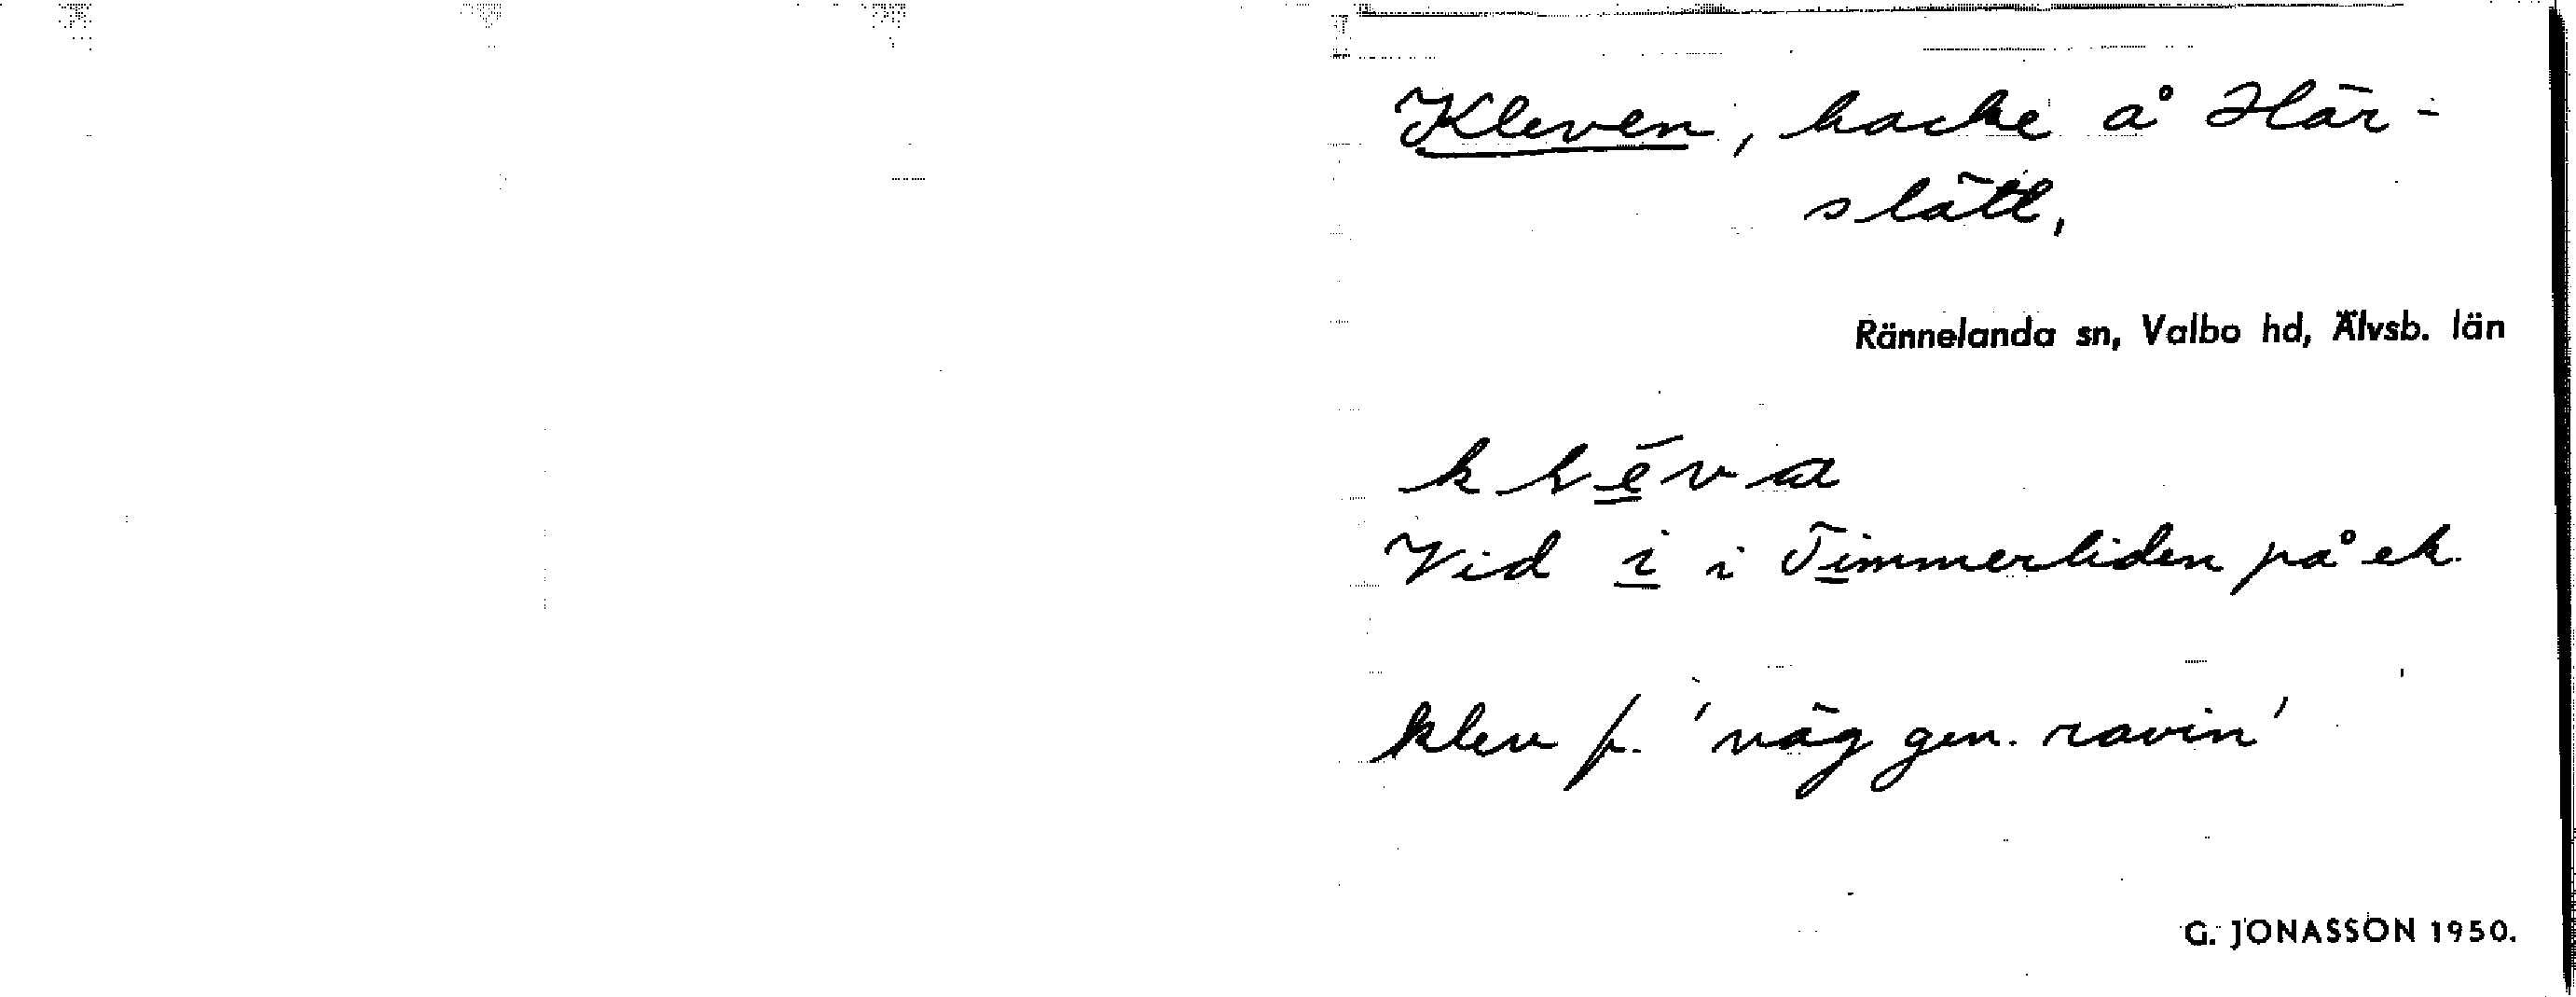 Kleven, backe å Här-
slätt,
Rännelanda sn, Valbo hd, Älvsb. län
Vid i i Timmerliden på ek.
klev f. 'väg gen. ravin'
G. JONASSON 1950.